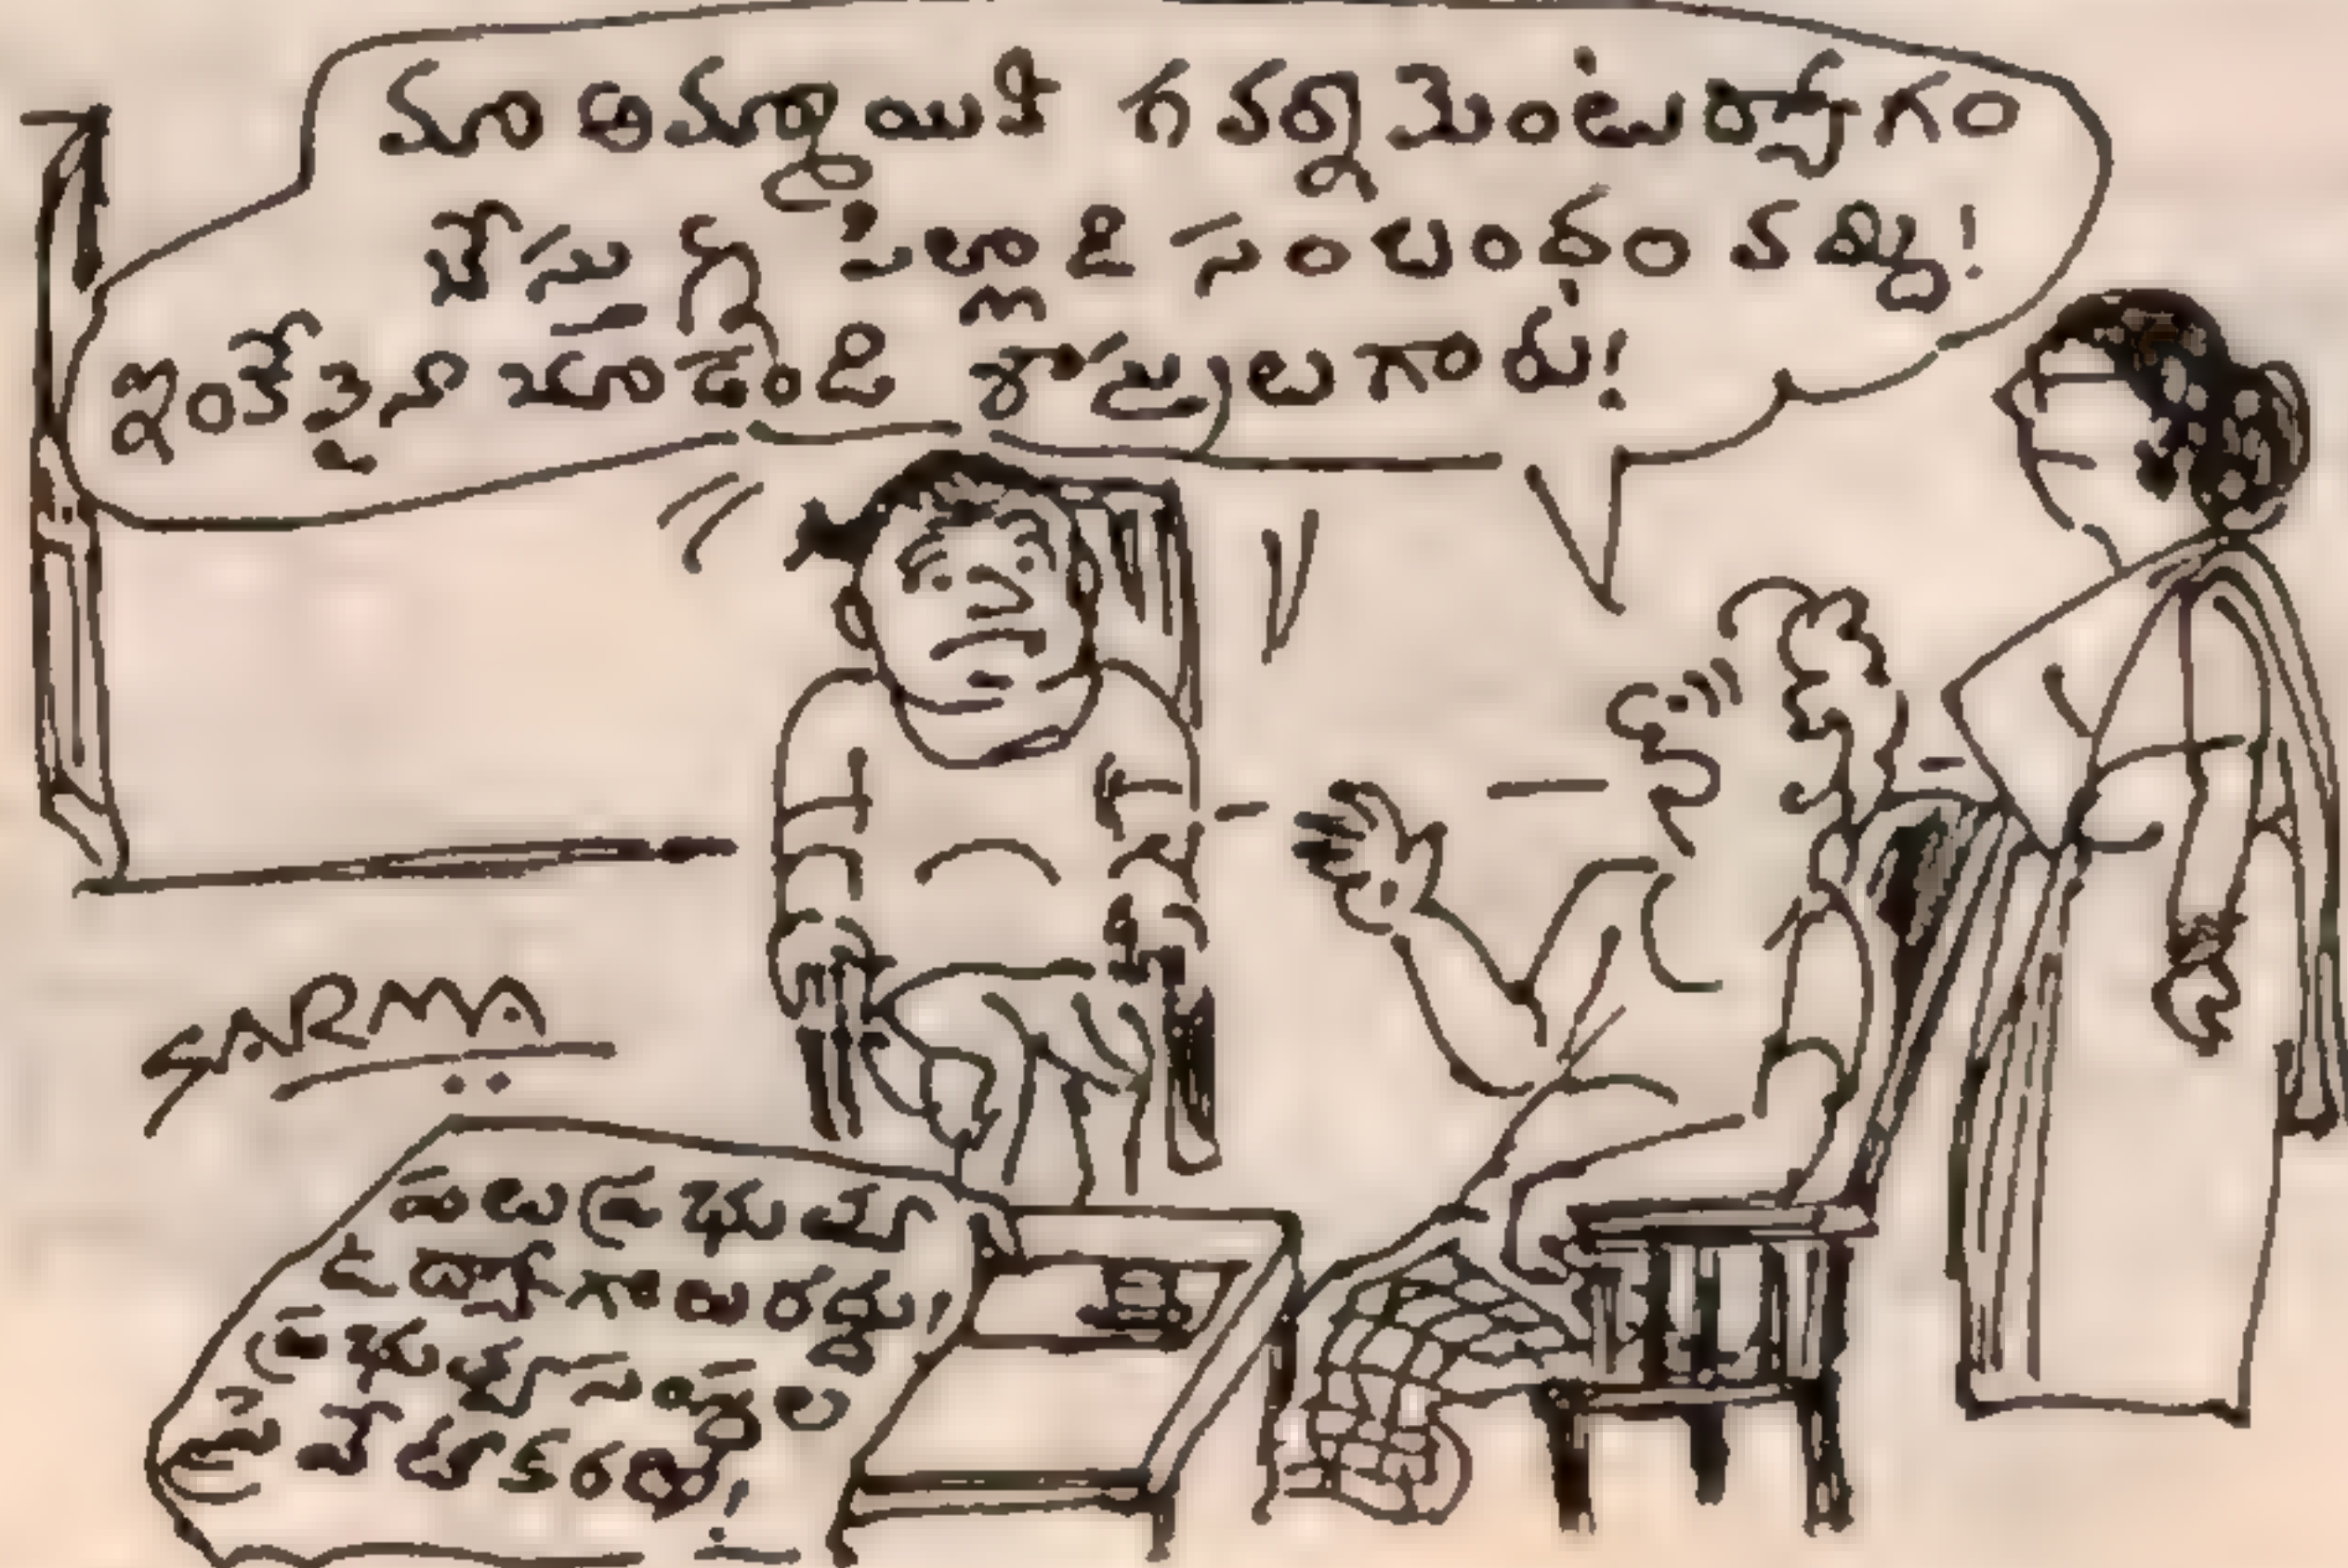 మా అమ్మాయికి గవర్నమెంటుద్యోగం
చేస్తున్న పిల్లాడి సంబంధం వద్దు!
ఇంకేదైనా చూడండి శాస్త్రులుగారు!
SARMA
పలు ప్రభుత్వ
ఉద్యోగాలు రద్దు,
ప్రభుత్వ సంస్థల
ప్రైవేటీకరణ!